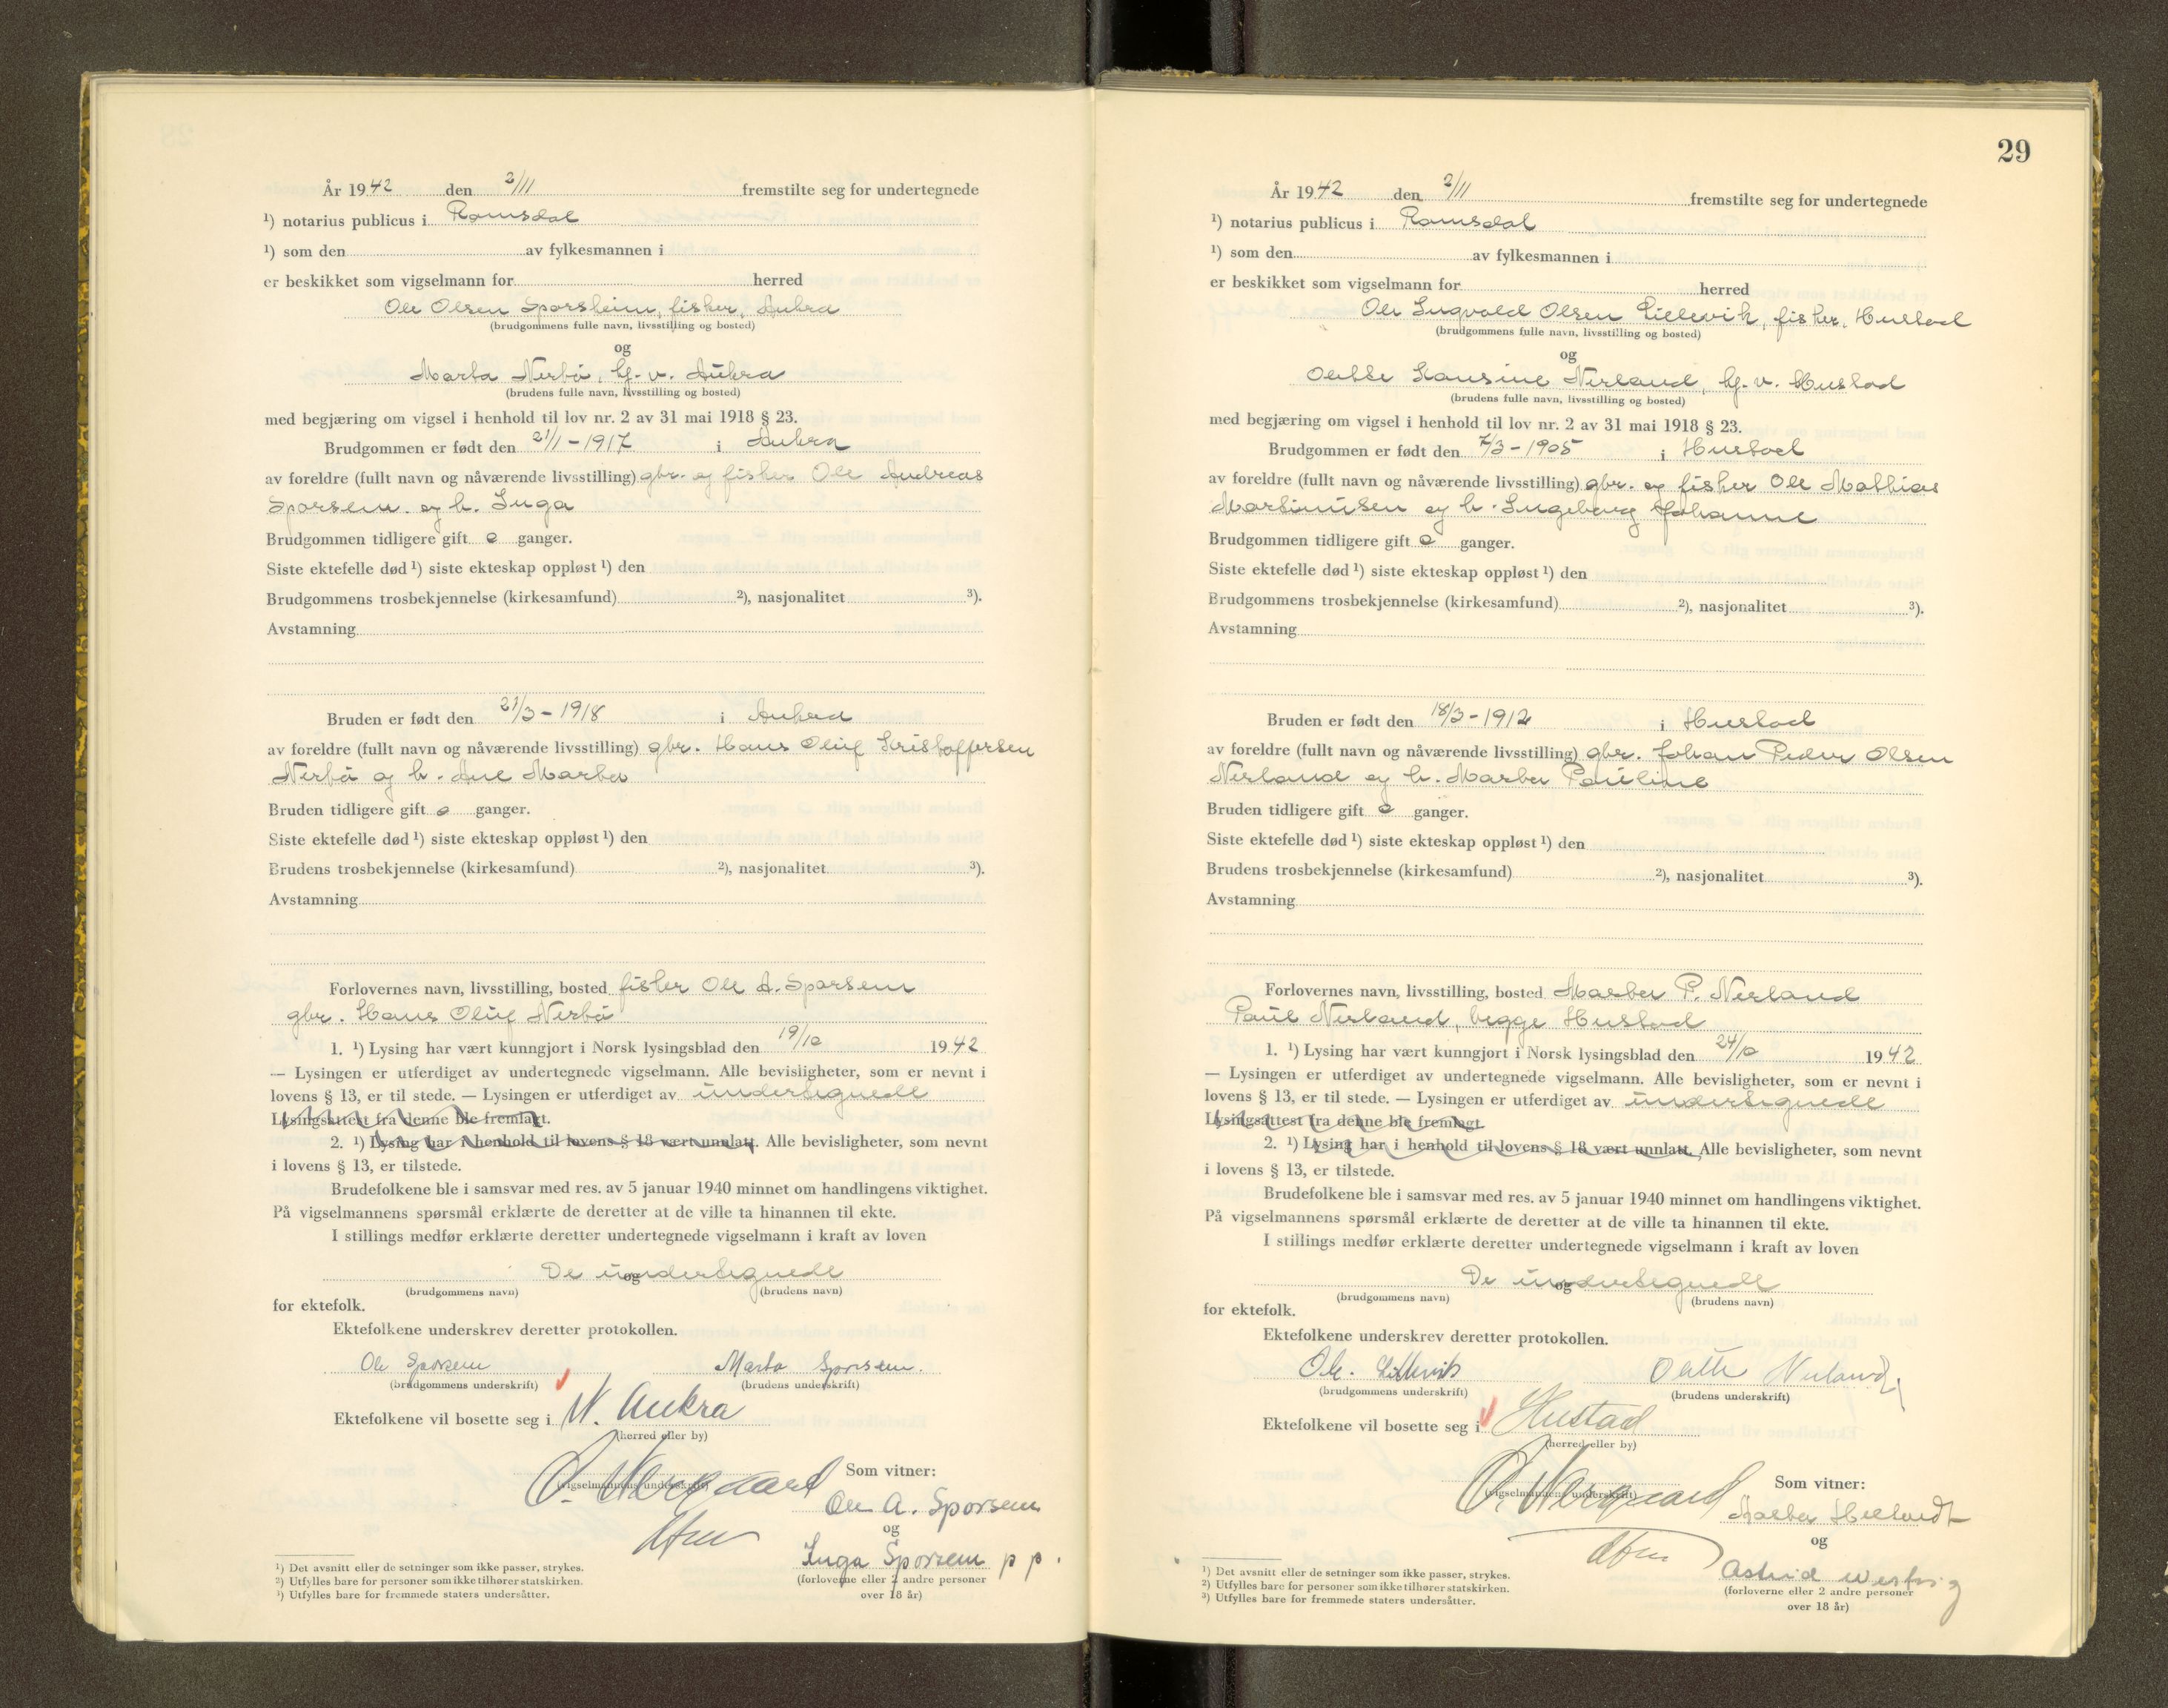 År 1942 den 2/11 fremstilte seg for undertegnede
¹) notarius publicus i Romsdal
¹) som den av fylkesmannen i
er beskikket som vigselmann for herred
Ole Olsen Sporsheim, fisker, Aukra
(brudgommens fulle navn, livsstilling og bosted)
og
Marta Nerbö, hj. v. Aukra
(brudens fulle navn, livsstilling og bosted)
med begjæring om vigsel i henhold til lov nr. 2 av 31 mai 1918 § 23.
Brudgommen er født den 21/1-1917 i Aukra
av foreldre (fullt navn og nåværende livsstilling) gbr. og fisker Ole Andreas
Sporsem og h. Inga
Brudgommen tidligere gift 0 ganger.
Siste ektefelle død ¹) siste ekteskap oppløst ¹) den
Brudgommens trosbekjennelse (kirkesamfund) ²), nasjonalitet ³).
Avstamning
Bruden er født den 21/3-1918 i Aukra
av foreldre (fullt navn og nåværende livsstilling) gbr. Hans Oluf Kristoffersen
Nerbö og h. Ane Marta
Bruden tidligere gift 0 ganger.
Siste ektefelle død ¹) siste ekteskap oppløst ¹) den
Brudens trosbekjennelse (kirkesamfund) ²), nasjonalitet ³).
Avstamning
Forlovernes navn, livsstilling, bosted fisker Ole A. Sporsem
gbr. Hans Oluf Nerbö
1. ¹) Lysing har vært kunngjort i Norsk lysingsblad den 19/10 1942
— Lysingen er utferdiget av undertegnede vigselmann. Alle bevisligheter, som er nevnt i
lovens § 13, er til stede. — Lysingen er utferdiget av undertegnede
Lysingsattest fra denne ble fremlagt.
2. ¹) Lysing har i henhold til lovens § 18 vært unnlatt. Alle bevisligheter, som nevnt
i lovens § 13, er tilstede.
Brudefolkene ble i samsvar med res. av 5 januar 1940 minnet om handlingens viktighet.
På vigselmannens spørsmål erklærte de deretter at de ville ta hinannen til ekte.
I stillings medfør erklærte deretter undertegnede vigselmann i kraft av loven
De undertegnede
og
(brudgommens navn) (brudens navn)
for ektefolk.
Ektefolkene underskrev deretter protokollen.
Ole Sporsem Marta Sporsem.
(brudgommens underskrift) (brudens underskrift)
Ektefolkene vil bosette seg i N. Aukra
(herred eller by)
Som vitner:
(vigselmannens underskrift)
Ole A. Sporsem
og
Inga Sporsem p p.
(forloverne eller 2 andre personer
over 18 år)
¹) Det avsnitt eller de setninger som ikke passer, strykes.
²) Utfylles bare for personer som ikke tilhører statskirken.
³) Utfylles bare for fremmede staters undersåtter.
29
År 1942 den 2/11 fremstilte seg for undertegnede
¹) notarius publicus i Romsdal
¹) som den av fylkesmannen i
er beskikket som vigselmann for herred
Ole Ingvald Olsen Lillevik, fisker, Hustad
(brudgommens fulle navn, livsstilling og bosted)
og
Olette Hansine Nerland, hj. v. Hustad
(brudens fulle navn, livsstilling og bosted)
med begjæring om vigsel i henhold til lov nr. 2 av 31 mai 1918 § 23.
Brudgommen er født den 7/3-1905 i Hustad
av foreldre (fullt navn og nåværende livsstilling) gbr. og fisker Ole Mathias
Martinusen og h. Ingeborg Johanne
Brudgommen tidligere gift 0 ganger.
Siste ektefelle død ¹) siste ekteskap oppløst ¹) den
Brudgommens trosbekjennelse (kirkesamfund) ²), nasjonalitet ³).
Avstamning
Bruden er født den 18/3-1912 i Hustad
av foreldre (fullt navn og nåværende livsstilling) gbr. Johan Peder Olsen
Nerland og h. Marta Pauline
Bruden tidligere gift 0 ganger.
Siste ektefelle død ¹) siste ekteskap oppløst ¹) den
Brudens trosbekjennelse (kirkesamfund) ²), nasjonalitet ³).
Avstamning
Forlovernes navn, livsstilling, bosted Marta P. Nerland
Paul Nerland, begge Hustad
1. ¹) Lysing har vært kunngjort i Norsk lysingsblad den 24/10 1942
— Lysingen er utferdiget av undertegnede vigselmann. Alle bevisligheter, som er nevnt i
lovens § 13, er til stede. — Lysingen er utferdiget av undertegnede
Lysingsattest fra denne ble fremlagt.
2. ¹) Lysing har i henhold til lovens § 18 vært unnlatt. Alle bevisligheter, som nevnt
i lovens § 13, er tilstede.
Brudefolkene ble i samsvar med res. av 5 januar 1940 minnet om handlingens viktighet.
På vigselmannens spørsmål erklærte de deretter at de ville ta hinannen til ekte.
I stillings medfør erklærte deretter undertegnede vigselmann i kraft av loven
De undertegnede
og
(brudgommens navn) (brudens navn)
for ektefolk.
Ektefolkene underskrev deretter protokollen.
Ole. Lillevik Olette Nerland
(brudgommens underskrift) (brudens underskrift)
Ektefolkene vil bosette seg i Hustad
(herred eller by)
Som vitner:
(vigselmannens underskrift)
og
Astrid
(forloverne eller 2 andre personer
over 18 år)
¹) Det avsnitt eller de setninger som ikke passer, strykes.
²) Utfylles bare for personer som ikke tilhører statskirken.
³) Utfylles bare for fremmede staters undersåtter.